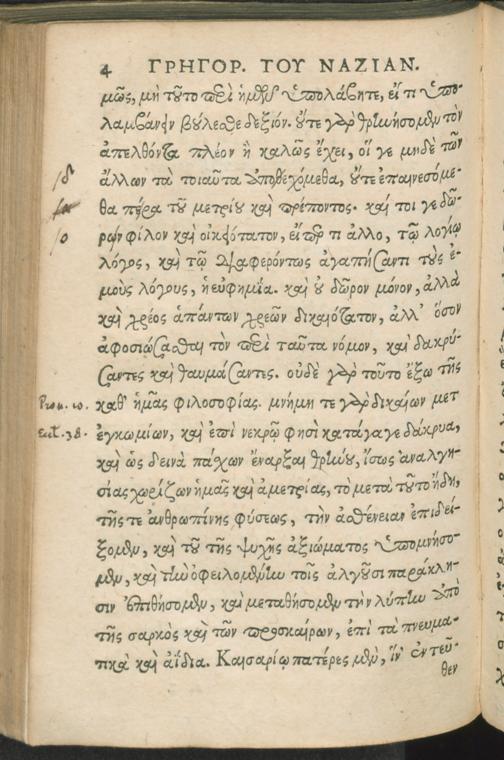 4 ΓΡΗΓΟΡ. ΤΟΥ ΝΑΖΙΑΝ.
μῶς, μὴ τοῦτο περὶ ἡμῶν ὑπολάβητε, εἴ τι ὑπο-
λαμβάνειν βούλεσθε δεξιόν. οὔτε γὰρ θρηνήσομεν τὸν
ἀπελθόντα πλέον ἢ καλῶς ἔχει, οἵ γε μηδὲ τῶν
ἄλλων τὰ τοιαῦτα ἀποδεχόμεθα, οὔτε ἐπαινεσόμε-
θα πέρα τοῦ μετρίου καὶ πρέποντος. καί τοι γε δῶ-
ρον φίλον καὶ οἰκειότατον, εἴπερ τι ἄλλο, τῷ λογίῳ
λόγος, καὶ τῷ διαφερόντως ἀγαπήσαντι τοὺς ἐ-
μοὺς λόγους, ἡ εὐφημία. καὶ οὐ δῶρον μόνον, ἀλλὰ
καὶ χρέος ἁπάντων χρεῶν δικαιότατον, ἀλλ' ὅσον
ἀφοσιώσασθαι τὸν περὶ ταῦτα νόμον, καὶ δακρύ-
σαντες καὶ θαυμάσαντες. οὐδὲ γὰρ τοῦτο ἔξω τῆς
καθ' ἡμᾶς φιλοσοφίας. μνήμη τε γὰρ δικαίων μετ
ἐγκωμίων, καὶ ἐπὶ νεκρῷ φησὶ κατάγαγε δάκρυα,
καὶ ὡς δεινὰ πάχων ἔναρξαι θρήνου, ἴσως ἀναλγη-
σίας χωρίζων ἡμᾶς καὶ ἀμετρίας, τὸ μετὰ τοῦτο ἤδη,
τῆς τε ἀνθρωπίνης φύσεως, τὴν ἀσθένειαν ἐπιδεί-
ξομεν, καὶ τοῦ τῆς ψυχῆς ἀξιώματος ὑπομνήσο-
μεν, καὶ τὴν ὀφειλομένην τοῖς ἀλγοῦσι παράκλη-
σιν ἐπιθήσομεν, καὶ μεταθήσομεν τὴν λύπην ἀπὸ
τῆς σαρκὸς καὶ τῶν προσκαίρων, ἐπὶ τὰ πνευμα-
τικὰ καὶ ἀΐδια. Καισαρίῳ πατέρες μὲν, ἵν' ἐντεῦ-
θεν
Prou. 10.
Eccl. 38.
/δ
/ο